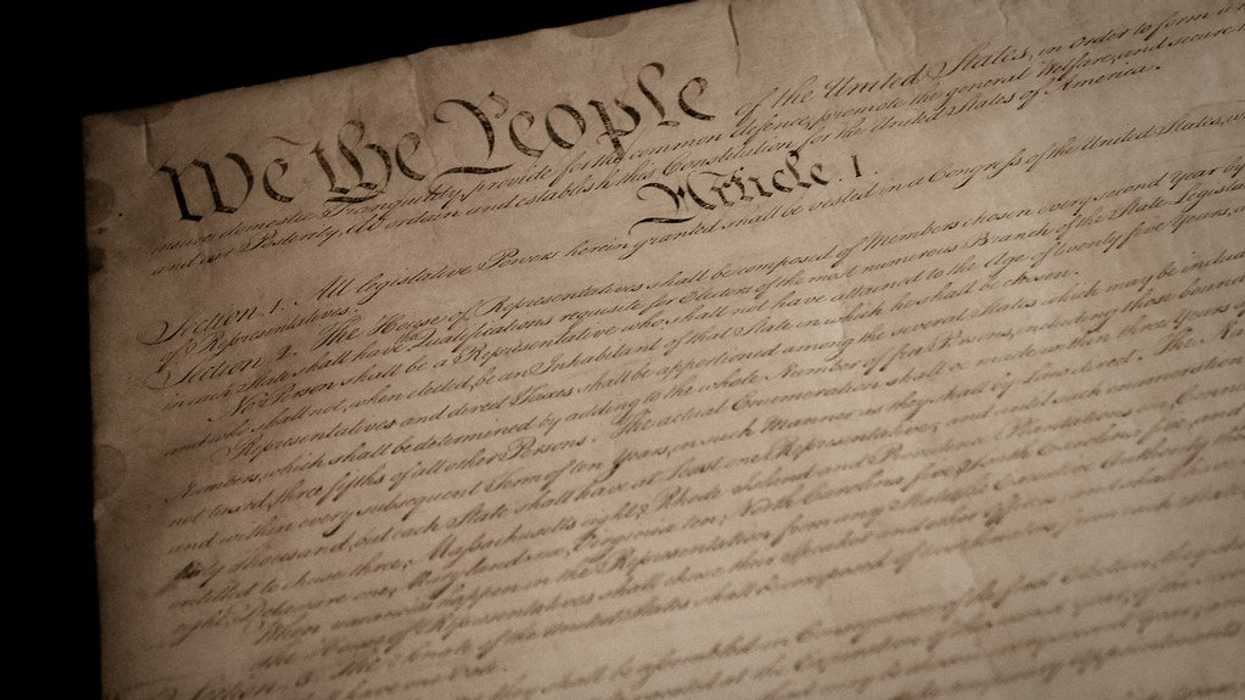 We the People of the United States, in Order to form a
insure domestic Tranquility, provide for the common defence, promote the general Welfare, and secure
and our Posterity, do ordain and establish this Constitution for the United States of America.
Article. I.
Section. 1. All legislative Powers herein granted shall be vested in a Congress of the United States,
of Representatives.
Section. 2. The House of Representatives shall be composed of Members chosen every second Year by
in each State shall have the Qualifications requisite for Electors of the most numerous Branch of the State
No Person shall be a Representative who shall not have attained to the Age of twenty five Years,
and who shall not, when elected, be an Inhabitant of that State in which he shall be chosen.
Representatives and direct Taxes shall be apportioned among the several States which may be
Numbers, which shall be determined by adding to the whole Number of free Persons, including those bound
not taxed, three fifths of all other Persons. The actual Enumeration shall be made within three Years
and within every subsequent Term of ten Years, in such Manner as they shall by Law direct. The
thirty Thousand, but each State shall have at Least one Representative; and until such enumeration
entitled to chuse three, Massachusetts eight, Rhode Island and Providence Plantations one,
eight, Delaware one, Maryland six, Virginia ten, North Carolina five, South Carolina five, and
When vacancies happen in the Representation from any State, the Executive Authority
The House of Representatives shall chuse their Speaker and other Officers; and shall have
Section. 3. The Senate of the United States shall be composed of two Senators from each State,